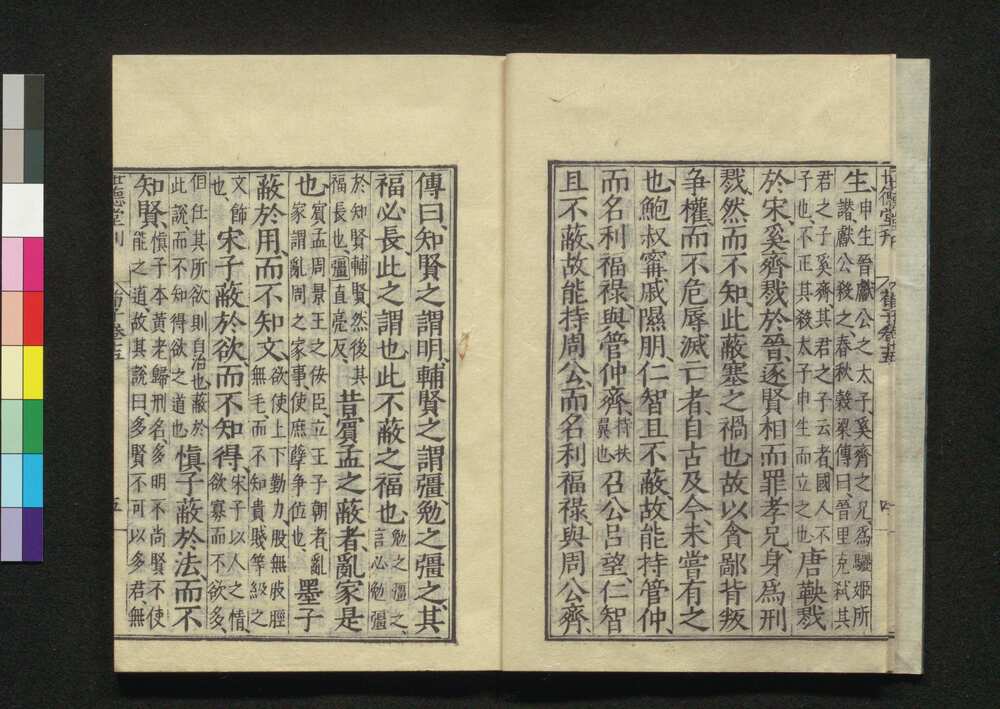 生、申生晉獻公之太子奚齊之兄爲驪姬所
譖、獻公殺之春秋穀梁傳曰、晉里克弑其
君之子奚齊其君之子云者、國人不
子也、不正其殺太子申生而立之也
唐鞅戮
於宋、奚齊戮於晉、逐賢相而罪孝兄、身爲刑
戮、然而不知、此蔽塞之禍也、故以貪鄙背叛
争權、而不危辱滅亡者、自古及今、未嘗有之
也、鮑叔甯戚隰朋、仁智且不蔽、故能持管仲、
而名利福祿與管仲齊、持扶
翼也
召公呂望、仁智
且不蔽、故能持周公、而名利福祿與周公齊、
傳曰、知賢之謂明、輔賢之謂彊、勉之彊之、其
福必長、此之謂也、此不蔽之福也、勉之彊之、
言必勉彊
於知賢輔賢、然後其
福長也、彊直亮反、
昔賓孟之蔽者、亂家是
也、賓孟周景王之佞臣、立王子朝者、亂
家謂亂周之家事、使庶孽争位也
墨子
蔽於用、而不知文、欲使上下勤力、股無胈脛
無毛、而不知貴賤等級之
文飾
也、
宋子蔽於欲、而不知得、宋子以人之情、
欲寡而不欲多、
但任其所欲則自治也、蔽於
此說、而不知得欲之道也
慎子蔽於法、而不
知賢、慎子本黄老歸刑名、多明不尚賢不使
能之道故其說曰、多賢不可以多君無
世德堂刊
荀子卷十五
五